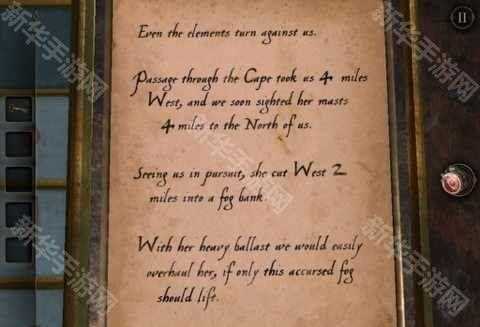 Even the elements turn against us.
Passage through the Cape took us 4 miles
West, and we soon sighted her masts
4 miles to the North of us.
Seeing us in pursuit, she cut West 2
miles into a fog bank
With her heavy ballast we would easily
overhaul her, if only this accursed fog
should lift.
新华手游网
新华手游网
新华手游网
新华手游网
新华手游网
新华手游网
新华手游网